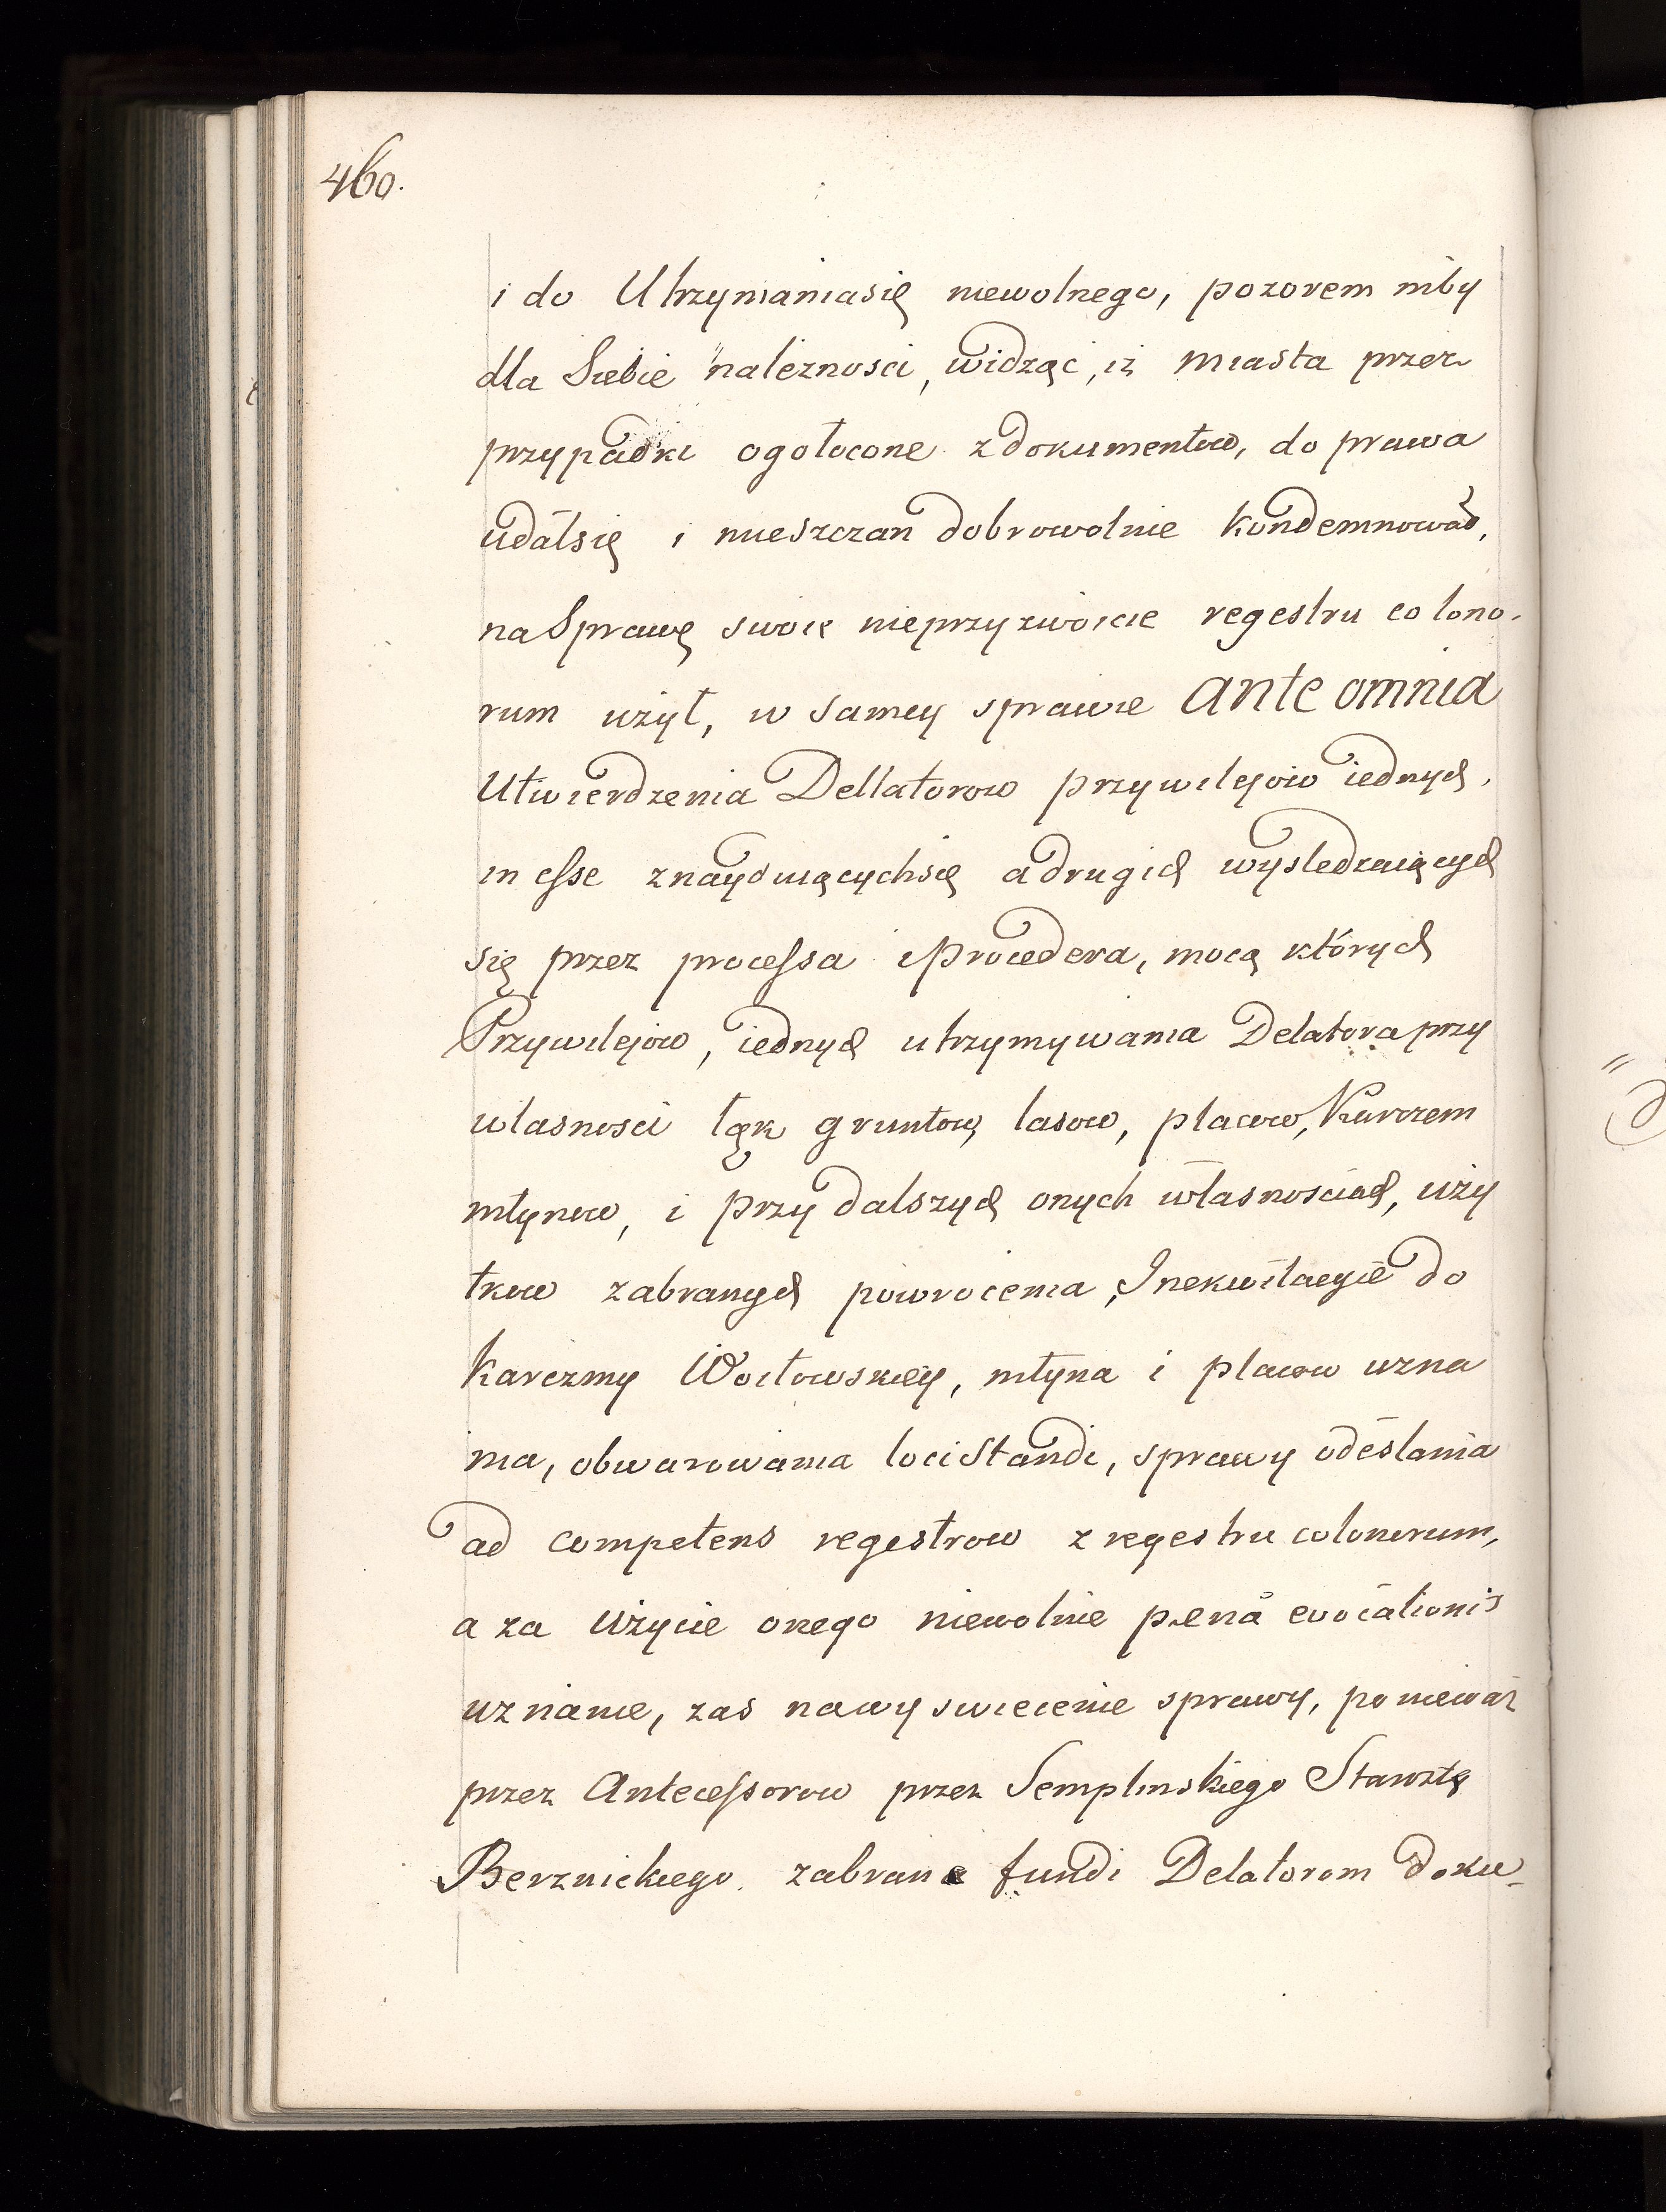 460.
i do Utrzymaniasię niewolnego, pozorem niby
dla Siebie należnosci, widząc, iż miasta przez
przypadki ogołocone z dokumentow, do prawa
udałsię i mieszczan dobrowolnie kondemnował,
na Sprawę swoię nieprzyzwoicie regestru colono-
rum użył, w samey sprawie ante omnia
Utwierdzenia Dellatorow przywilejow iednych,
in esse znayduiącychsię a drugich wysledzaiących
się przez processa i procedera, mocą których
Przywilejow, iednych utrzymywania Delatora przy
własnosci łąk gruntow, lasow, placow, Karczem
młynow, i przy dalszych onych własnosciach, uży
tkow zabranych powrocenia, Inekwitacyie do
Karczmy Woitowskiey, młyna i placow uzna
nia, obwarowania loci Standi, sprawy odesłania
ad competens regestrow z regestru colonorum,
a za użycie onego niewolnie pæna evocationis
uznanie, zas na wyswiecenie sprawy, ponieważ
przez Antecessorow przez Semplinskiego Starostę
Berznickiego zabrane fundi Delatorom doku-